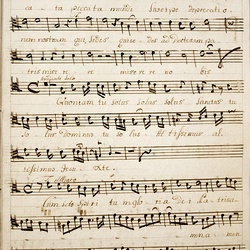 ca ta peccata mundi Suscipe deprecatio
nem nostram qui sedes qui sedes ad dexteram pa
tris mise re re misere re no bis
Quoniam tu solus solus solus Sanctus tu
So lus Dominus tu so lus Altissimus al
tissimus Jesu Xte.
Cum Sto Spiri tu in glo ria Dei Patris a
men a men